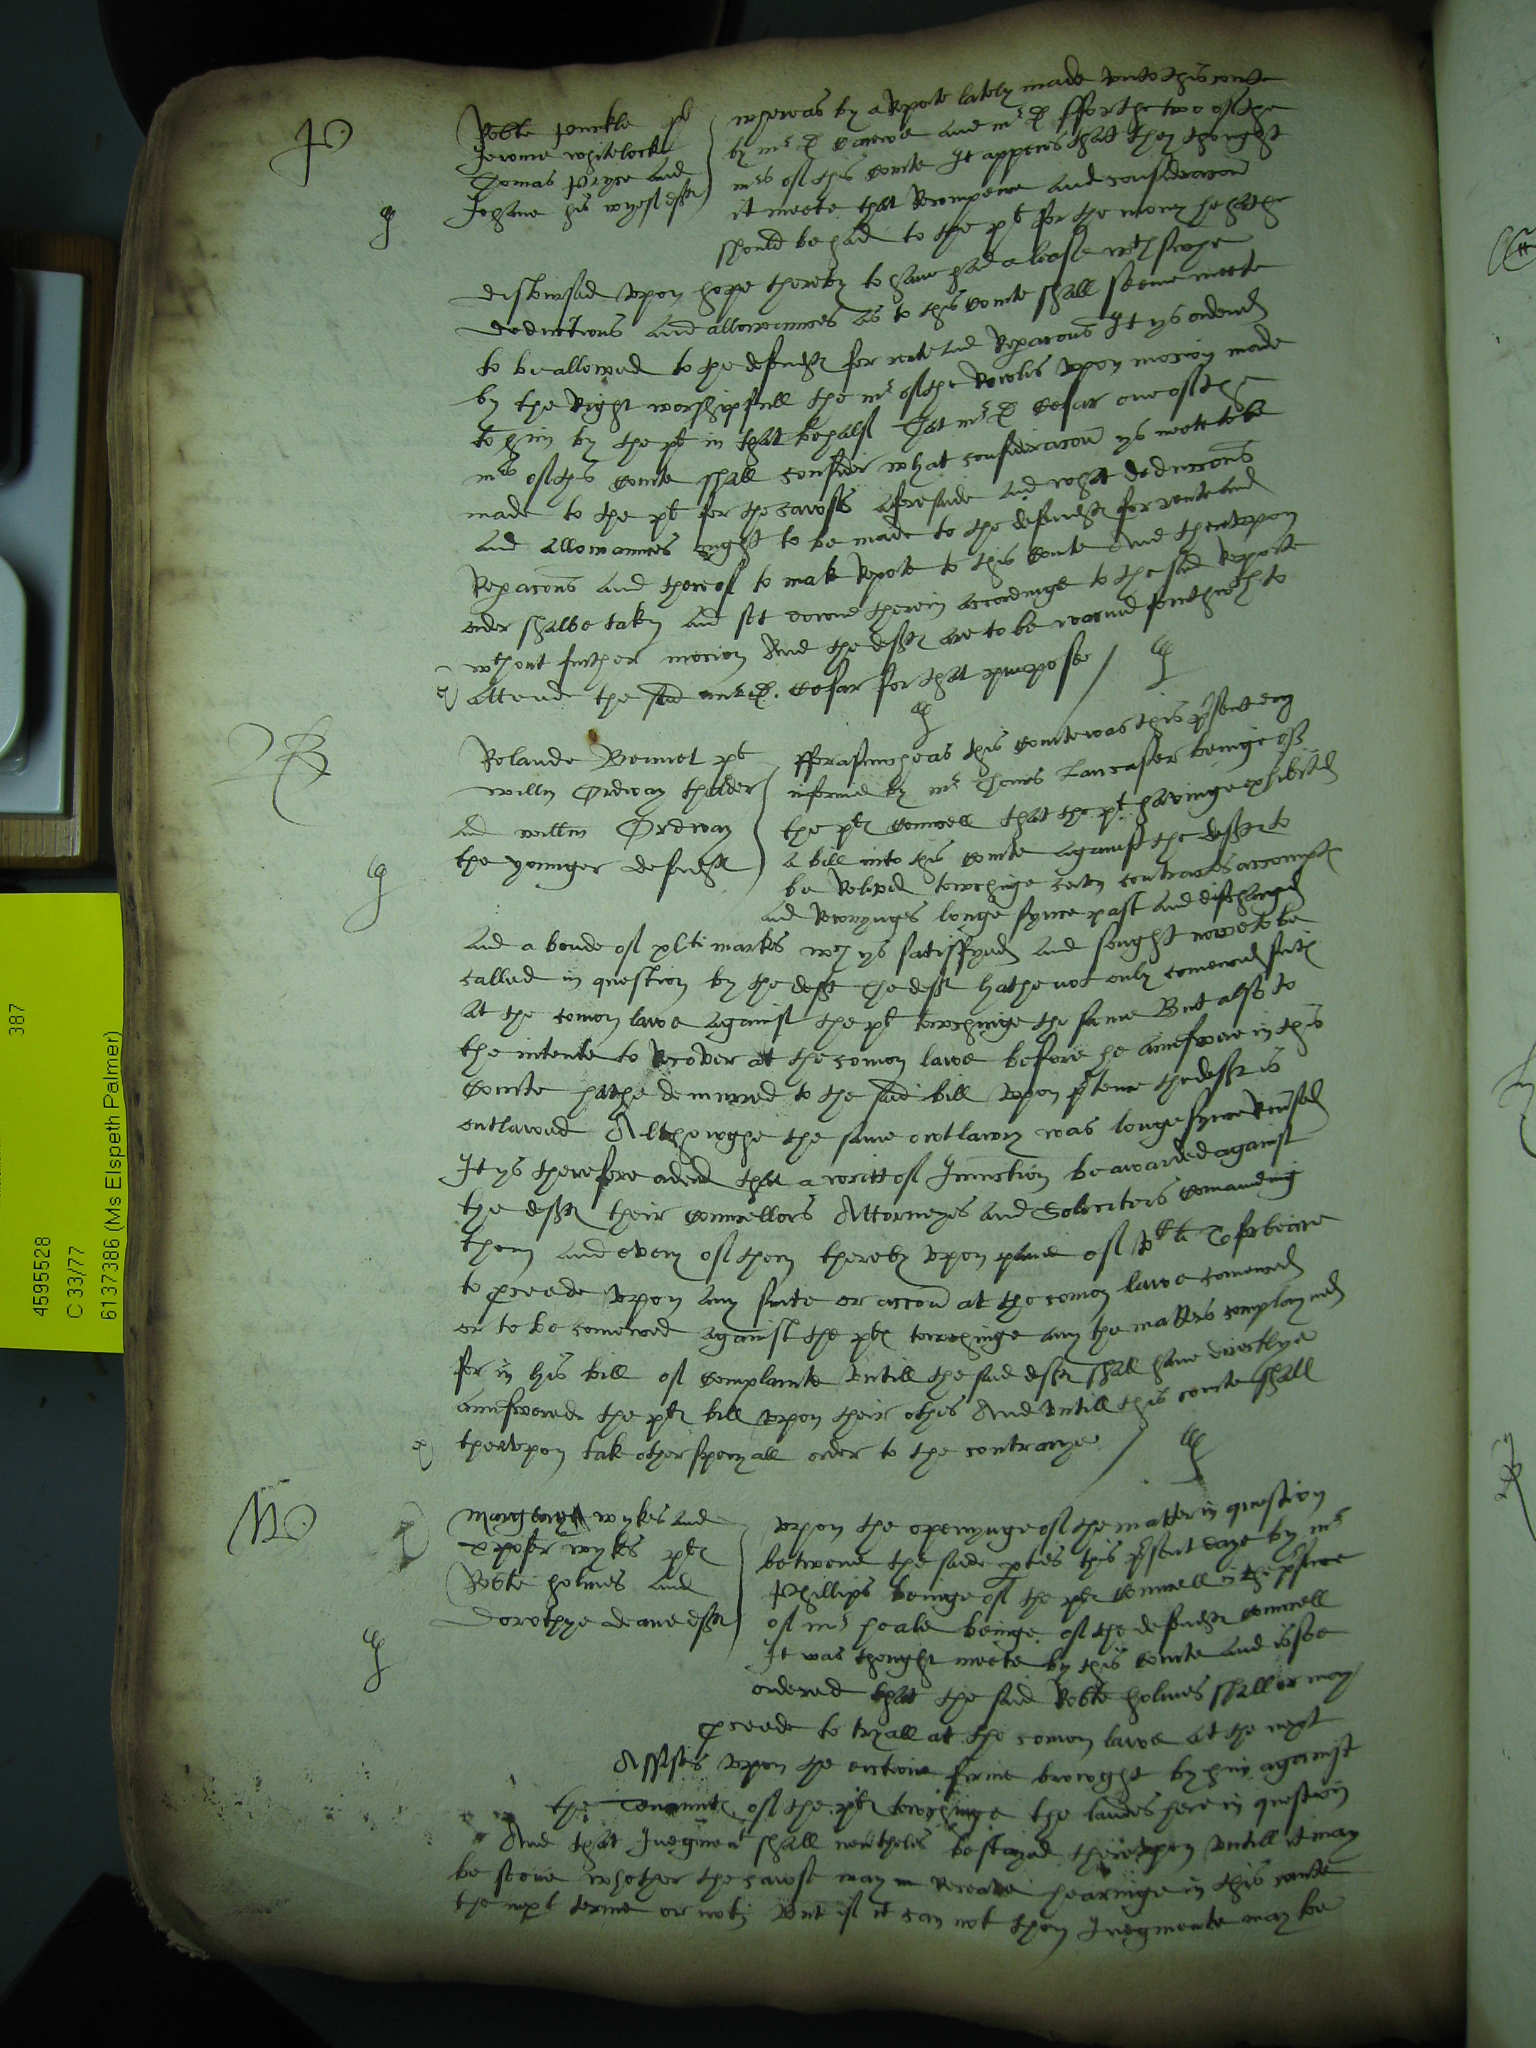 P
Robte Punckle pl
Jerome Whitelocke
Thomas Pryse and
Johane his wyef deftes
whereas by a Reporte lately made unto this courte
by mr D Carewe and mr D fforthe two of the
mrs of this Courte It apperes that they thought
it meete that Recompence and consideracon
should be had to the pl for the money he hathe
disbursed upon hope thereby to have had a lease wth suche
deductions and allowances as to this Courte shall seeme meete
to be allowed to the defendtes for rente and Reparacons It ys ordered
by the Right worshipfull the mr of the Rowles upon mocion made
to him by the pl in that behalf That mr D Cesar one of the
mrs of this Courte shall consider what consideracon ys meete to be
made to the pl for the cawses aforesaide and what deduccons
and allowances ought to be made to the defendtes for rente and
Reparacons and thereof to make Reporte to this Courte And thereupon
order shalbe taken and set downe therein accordinge to the said Reporte
wthout further mocion And the deftes are to be warned forthwth to
attende the said mr D. Cesar for that purpose
B
Rolande Bennet pl
Willm Ordway thelder
and willm Ordway
the younger defendtes
fforasmuche as this Courte was this present day
informed by mr Thoms Lancaster beinge of
the ples Counsell that the pl havinge exhibited
a bill into this Courte against the deftes to
be Relived towchinge certen contractes accompts
and Reconyngs longe synce past and discharged
and a bonde of xl li markes wch ys satisfyed and sought nowe to be
called in question by the deft The deft hathe not only comenced sute
at the comon lawe against the pl towchinge the same But also to
the intente to Recover at the comon lawe before he answere in this
Courte hathe demurred to the said bill upon pretence the deft is
outlawed Althowghe the same owtlawry was longe synce Reversed
It ys therefore ordered that a writt of Injunction be awarded against
the deftes their Counsellors Attorneyes and Solicitors Comanding
them and every of them thereby upon paine of li To forbeare
to procede upon any sute or accon at the comon lawe comenced
or to be comenced against the ples towchinge any the matters complayned
for in his bill of Complainte Untill the said deftes shall have directlye
aunswered the ples bill upon their othes And Untill this courte shall
thereupon take other speciall order to the contrarye
M
Margery wykes and
Xpofer wykes ples
Robte Holmes and
Dorothye Deane deftes
Upon the openynge of the matter in question
betwene the saide parties this present daye by mr
Phillips beinge of the ples Counsell in the presence
of mr Heale beinge of the defendtes Counsell
It was thought meete by this Courte and is soe
ordered that the said Robte Holmes shall or may
procede to tryall at the comon lawe at the next
Assises upon the eiectione firme browght by him against
the Tenants of the ples towchinge the landes here in question
And that Judgment shall neverthelesse be stayed thereupon Untill it may
be seene whether the cawse may Receave hearinge in this courte
the next terme or not But if it can not then Judgmente may be
4595528
C 33/77
6137386 (Ms Elspeth Palmer)
387